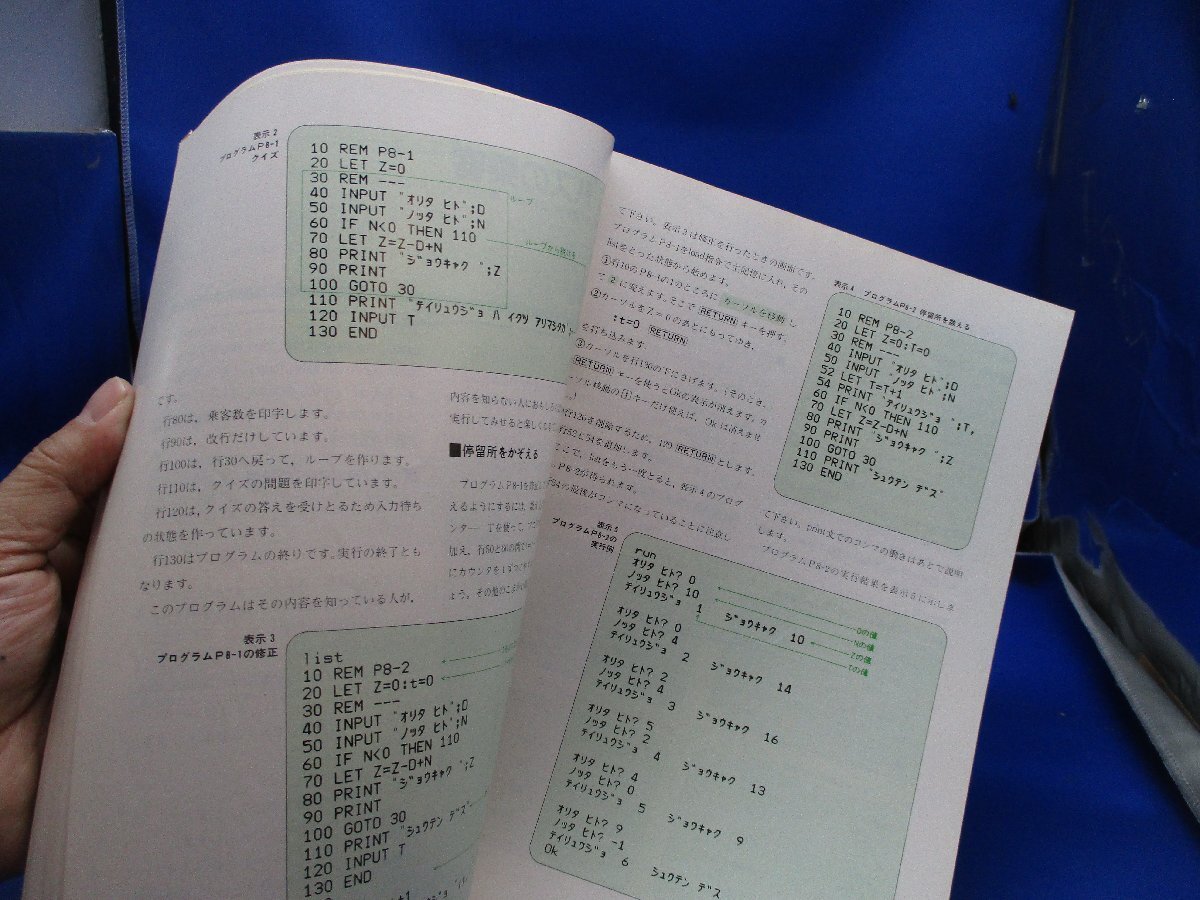 表示2
プログラムP8-1
クイズ
10 REM P8-1
20 LET Z=0
30 REM ---
40 INPUT "オリタ ヒト";D
50 INPUT "ノッタ ヒト";N
60 IF N<0 THEN 110
70 LET Z=Z-D+N
80 PRINT "ジョウキャク ";Z
90 PRINT
100 GOTO 30
110 PRINT "テイリュウジョ ハ イクツ アリマシタカ
120 INPUT T
130 END
ループ
ループから
です。
行80は、乗客数を印字します。
行90は、改行だけしています。
行100は、行30へ戻って、ループを作ります。
行110は、クイズの問題を印字しています。
行120は、クイズの答えを受けとるため入力待ち
の状態を作っています。
行130はプログラムの終りです。実行の終了とも
なります。
このプログラムはその内容を知っている人が、
内容を知らない人におもしろ
実行してみせると楽しく
■停留所をかぞえる
プログラムP8-1を
えるようにするには、
ンター Tを使って、
加え、行50と
にカウンタを1ずつ
ょう。その他の
表示3
プログラムP8-1の修正
list
10 REM P8-2
20 LET Z=0:t=0
30 REM ---
40 INPUT "オリタ ヒト";D
50 INPUT "ノッタ ヒト";N
60 IF N<0 THEN 110
70 LET Z=Z-D+N
80 PRINT "ジョウキャク ";Z
90 PRINT
100 GOTO 30
110 PRINT "シュウテン デス"
120 INPUT T
130 END
て下さい。表示3は修正を行ったときの画面です。
プログラムP8-1をload指令で主記憶に入れ、その
listをとった状態から始めます。
①行10のP8-1の1のところに カーソルを移動 し
て 2 に変えます。そこで RETURN キーを押す。
②カーソルをZ=0のあとにもってゆき、
:t=0 RETURN
を打ち込みます。
③カーソルを行130の下にさげます。(そのとき、
RETURN キーを使うとOkの表示が消えます。カ
ーソル移動の↓キーだけ使えば、Okは消えませ
行120を削除するため、120 RETURN とします。
行52と54を追加します。
ここで、listをもう一度とると、表示4のプログ
P8-2が得られます。
54の最後がコンマになっていることに注意し
表示4 プログラムP8-2 停留所を数える
10 REM P8-2
20 LET Z=0:T=0
30 REM ---
40 INPUT "オリタ ヒト";D
50 INPUT "ノッタ ヒト";N
52 LET T=T+1
54 PRINT "テイリュウジョ ";T,
60 IF N<0 THEN 110
70 LET Z=Z-D+N
80 PRINT "ジョウキャク ";Z
90 PRINT
100 GOTO 30
110 PRINT "シュウテン デス"
130 END
て下さい。print文でのコンマの働きはあとで説明
します。
プログラムP8-2の実行結果を表示5に示しま
表示5
プログラムP8-2の
実行例
run
オリタ ヒト? 0
ノッタ ヒト? 10
テイリュウジョ 1 ジョウキャク 10
Dの値
Nの値
Zの値
Tの値
オリタ ヒト? 0
ノッタ ヒト? 4
テイリュウジョ 2 ジョウキャク 14
オリタ ヒト? 2
ノッタ ヒト? 4
テイリュウジョ 3 ジョウキャク 16
オリタ ヒト? 5
ノッタ ヒト? 2
テイリュウジョ 4 ジョウキャク 13
オリタ ヒト? 4
ノッタ ヒト? 0
テイリュウジョ 5 ジョウキャク 9
オリタ ヒト? 9
ノッタ ヒト? -1
テイリュウジョ 6 シュウテン デス
Ok